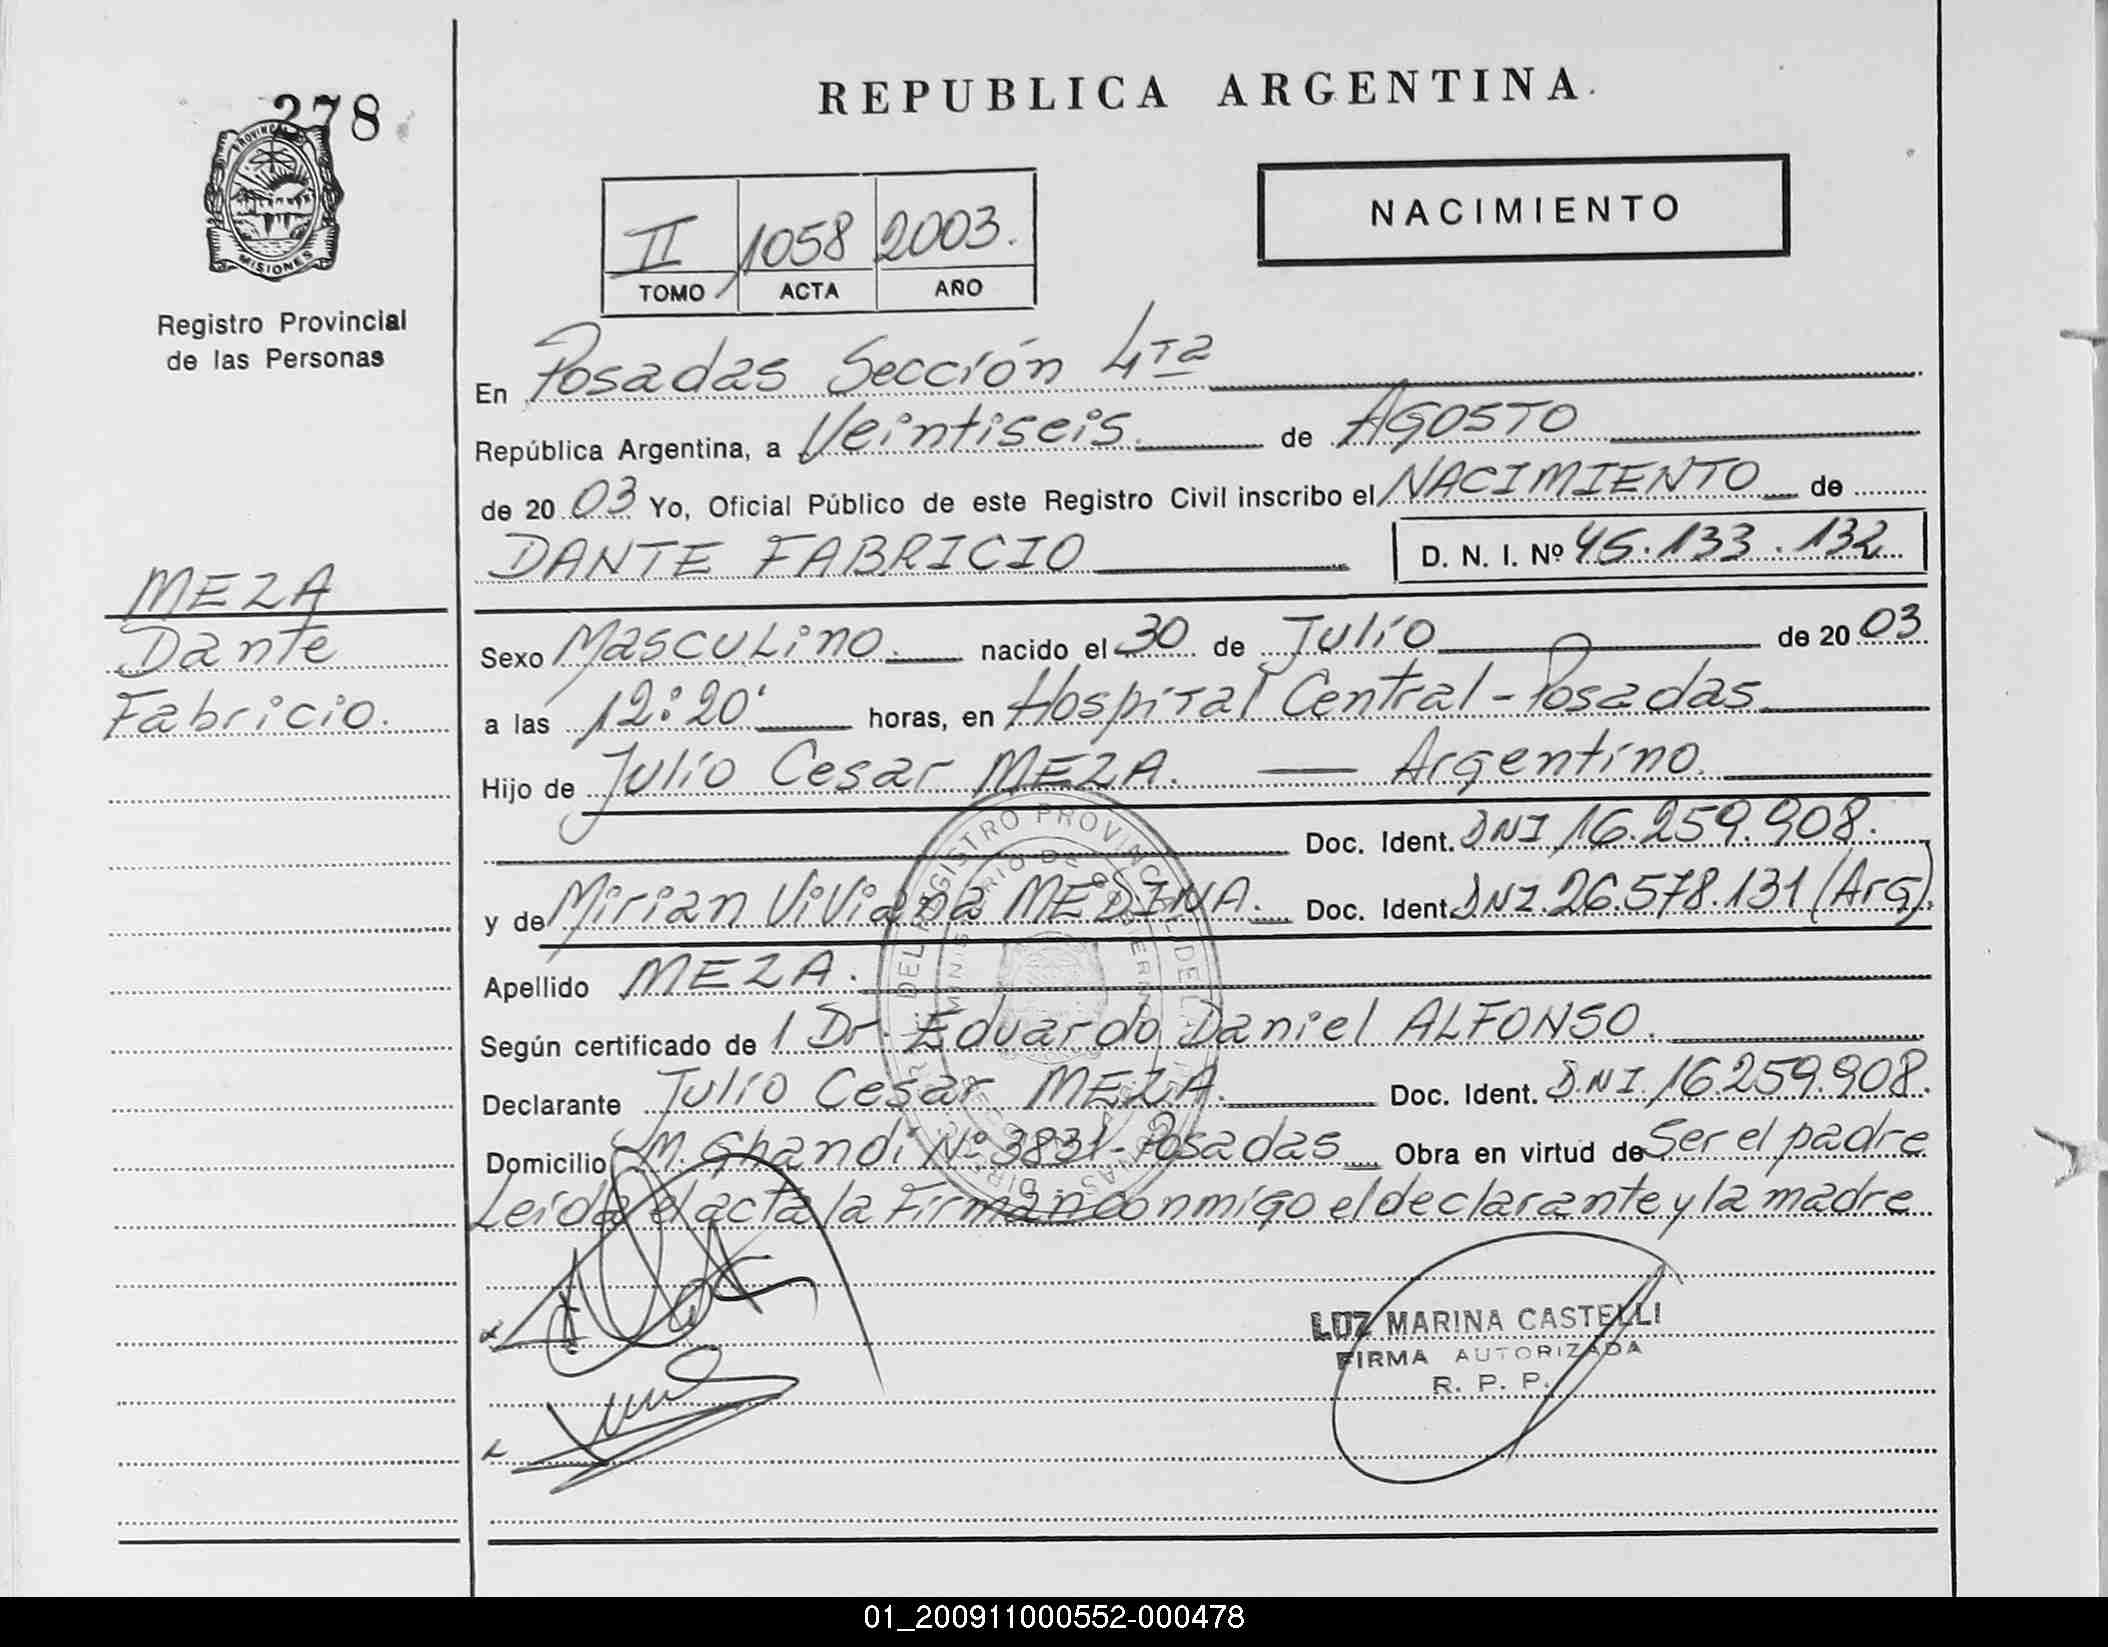 278
PROVINCIA DE
MISIONES
Registro Provincial
de las Personas
REPUBLICA ARGENTINA
II 1058 2003.
TOMO ACTA AÑO
NACIMIENTO
En Posadas Sección 4ta
República Argentina, a Veintiseis de AGOSTO
de 20 03 Yo, Oficial Público de este Registro Civil inscribo el NACIMIENTO de
DANTE FABRICIO D. N. I. Nº 45.133.132
MEZA
Dante
Fabricio.
Sexo Masculino. nacido el 30 de Julio de 20 03
a las 12:20' horas, en Hospital Central - Posadas
Hijo de Julio Cesar MEZA. — Argentino.
Doc. Ident. DNI 16.259.908.
y de Mirian Viviana MEDINA. Doc. Ident. DNI. 26.578.131 (Arg).
Apellido MEZA.
Según certificado de l Dr. Eduardo Daniel ALFONSO.
Declarante Julio Cesar MEZA. Doc. Ident. D.N.I. 16.259.908.
Domicilio M. Ghandi Nº 3831 - Posadas Obra en virtud de Ser el padre
Leida el acta la Firman conmigo el declarante y la madre
LUZ MARINA CASTELLI
FIRMA AUTORIZADA
R. P. P.
01_200911000552-000478